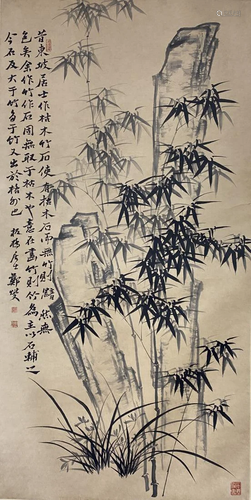 昔東坡居士作枯木竹石使有枯木石而無竹則黯然無
色矣余作竹作石固無取于枯木也意在畫竹則竹為主以石輔之
今石反大于竹多于竹又出於格外也 板橋居士鄭燮